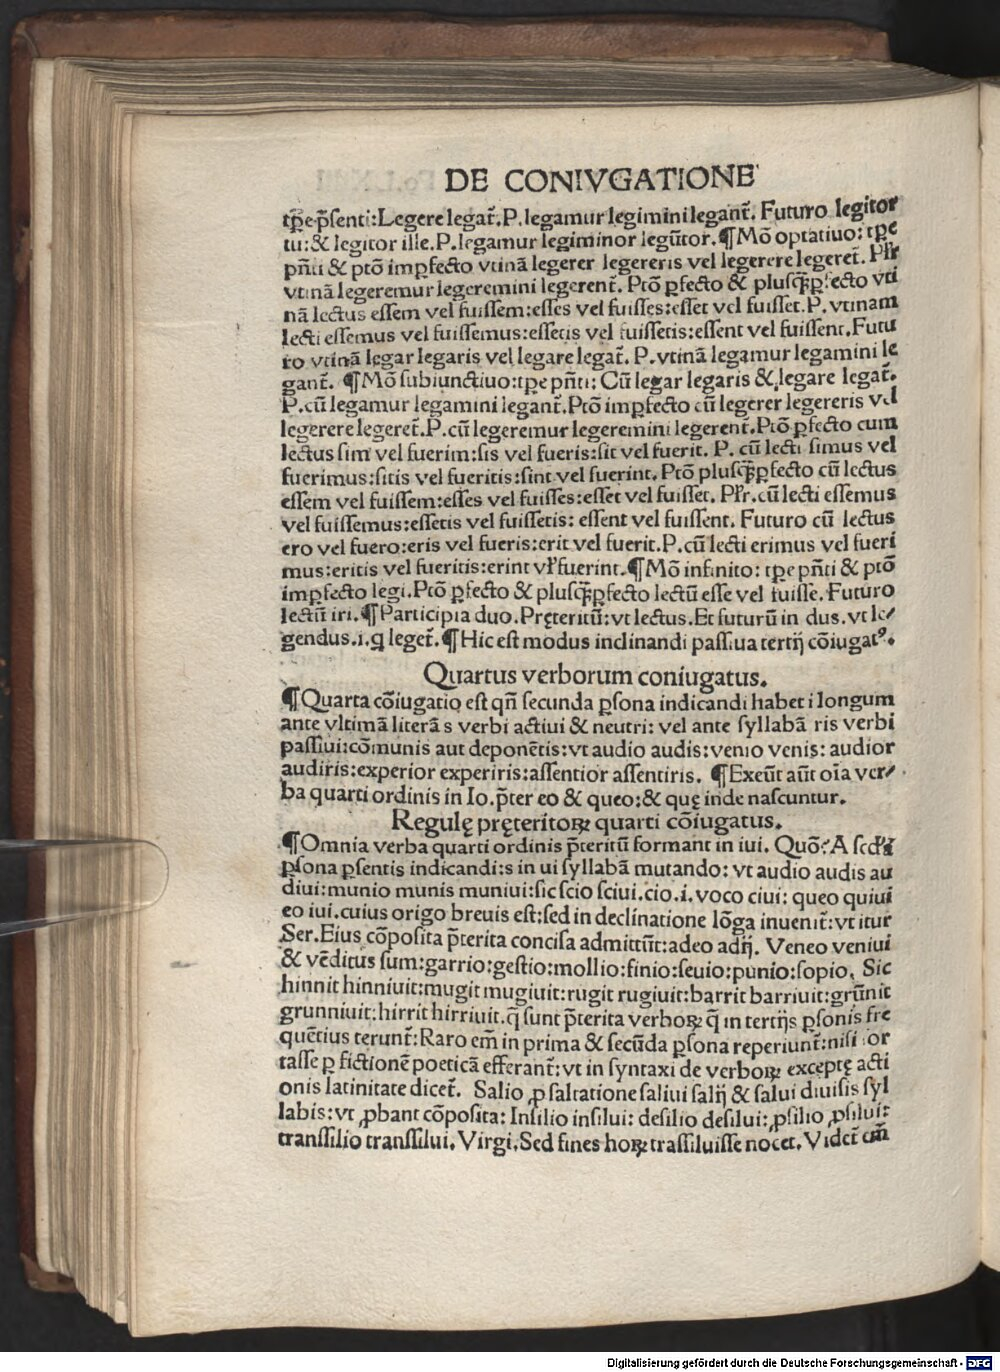 DE CONIVGATIONE
tp̄e p̄senti: Legere legat̄. P. legamur legimini legant̄. Futuro legitor
tu: & legitor ille. P. legamur legiminor legūtor. ¶ Mō optatiuo: tp̄e
pñti & ptō imp̱fecto vtinā legerer legereris vel legerere legeret̄. Pl̄r
vtinā legeremur legeremini legerent̄. Ptō p̱fecto & plusq̄p̱fecto vti
nā lectus essem vel fuissem: esses vel fuisses: esset vel fuisset. P. vtinam
lecti essemus vel fuissemus: essetis vel fuissetis: essent vel fuissent. Futu
ro vtinā legar legaris vel legare legat̄. P. vtinā legamur legamini le
gant̄. ¶ Mō subiunctiuo: tp̄e pñti: Cū legar legaris & legare legat̄.
P. cū legamur legamini legant̄. Ptō imp̱fecto cū legerer legereris vel
legerere legeret̄. P. cū legeremur legeremini legerent̄. Ptō p̱fecto cum
lectus sim vel fuerim: sis vel fueris: sit vel fuerit. P. cū lecti simus vel
fuerimus: sitis vel fueritis: sint vel fuerint. Ptō plusq̄p̱fecto cū lectus
essem vel fuissem: esses vel fuisses: esset vel fuisset. Pl̄r. cū lecti essemus
vel fuissemus: essetis vel fuissetis: essent vel fuissent. Futuro cū lectus
ero vel fuero: eris vel fueris: erit vel fuerit. P. cū lecti erimus vel fueri
mus: eritis vel fueritis: erint vł fuerint. ¶ Mō infinito: tp̄e pñti & ptō
imp̱fecto legi. Ptō p̱fecto & plusq̄p̱fecto lectū esse vel fuisse. Futuro
lectū iri. ¶ Participia duo. Pręteritū: vt lectus. Et futurū in dus. vt le⸗
gendus. i. q leget̄. ¶ Hic est modus inclinandi passiua tertij cōiugatꝰ.
Quartus verborum coniugatus.
¶ Quarta cōiugatio est qñ secunda p̱sona indicandi habet i longum
ante vltimā literā s verbi actiui & neutri: vel ante syllabā ris verbi
passiui: cōmunis aut deponētis: vt audio audis: venio venis: audior
audiris: experior experiris: assentior assentiris. ¶ Exeūt aūt oīa ver⸗
ba quarti ordinis in Io. p̄ter eo & queo: & quę inde nascuntur.
Regulę pręteritoꝝ quarti cōiugatus.
¶ Omnia verba quarti ordinis p̄teritū formant in iui. Quō? A secūda
p̱sona p̄sentis indicandi: s in ui syllabā mutando: vt audio audis au
diui: munio munis muniui: sic scio sciui. cio. i. voco ciui: queo quiui
eo iui. cuius origo breuis est: sed in declinatione lōga inuenit̄: vt itur
Ser. Eius cōposita p̄terita concisa admittūt: adeo adij. Veneo veniui
& vēditus sum: garrio: gestio: mollio: finio: seuio: punio: sopio. Sic
hinnit hinniuit: mugit mugiuit: rugit rugiuit: barrit barriuit: grūnit
grunniuit: hirrit hirriuit. q̄ sunt p̄terita verboꝝ q̄ in tertijs p̱sonis fre
quētius terunt̄: Raro em̄ in prima & secūda p̱sona reperiunt̄: nisi for
tasse p̱ fictionē poeticā efferant̄: vt in syntaxi de verboꝝ exceptę acti
onis latinitate dicet̄. Salio ꝓ saltatione saliui salij & salui diuisis syl
labis: vt ꝓbant cōposita: Insilio insilui: desilio desilui: ꝓsilio ꝓsilui:
transsilio transsilui. Virgi. Sed fines hoꝝ trassiluisse nocet. Videt̄ em̄
Digitalisierung gefördert durch die Deutsche Forschungsgemeinschaft - DFG